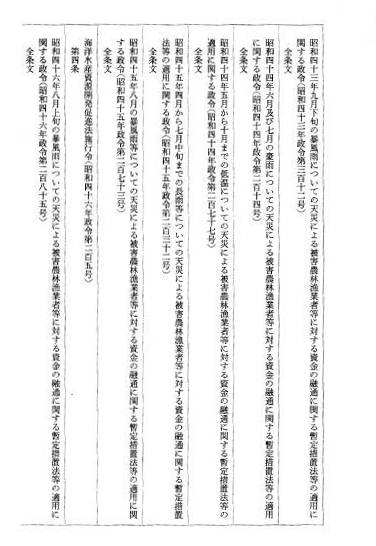 昭和四十三年九月下旬の暴風雨についての天災による被害農林漁業者等に対する資金の融通に関する暫定措置法等の適用に
関する政令(昭和四十三年政令第三百十二号)
全条文
昭和四十四年六月及び七月の豪雨についての天災による被害農林漁業者等に対する資金の融通に関する暫定措置法等の適用
に関する政令(昭和四十四年政令第二百十四号)
全条文
昭和四十四年五月から十月までの低温についての天災による被害農林漁業者等に対する資金の融通に関する暫定措置法等の
適用に関する政令(昭和四十四年政令第二百七十七号)
全条文
昭和四十五年四月から七月中旬までの長雨等についての天災による被害農林漁業者等に対する資金の融通に関する暫定措置
法等の適用に関する政令(昭和四十五年政令第二百三十二号)
全条文
昭和四十五年八月の暴風雨等についての天災による被害農林漁業者等に対する資金の融通に関する暫定措置法等の適用に関
する政令(昭和四十五年政令第二百七十三号)
全条文
海洋水産資源開発促進法施行令(昭和四十六年政令第二百五号)
第四条
昭和四十六年八月上旬の暴風雨についての天災による被害農林漁業者等に対する資金の融通に関する暫定措置法等の適用に
関する政令(昭和四十六年政令第二百八十五号)
全条文